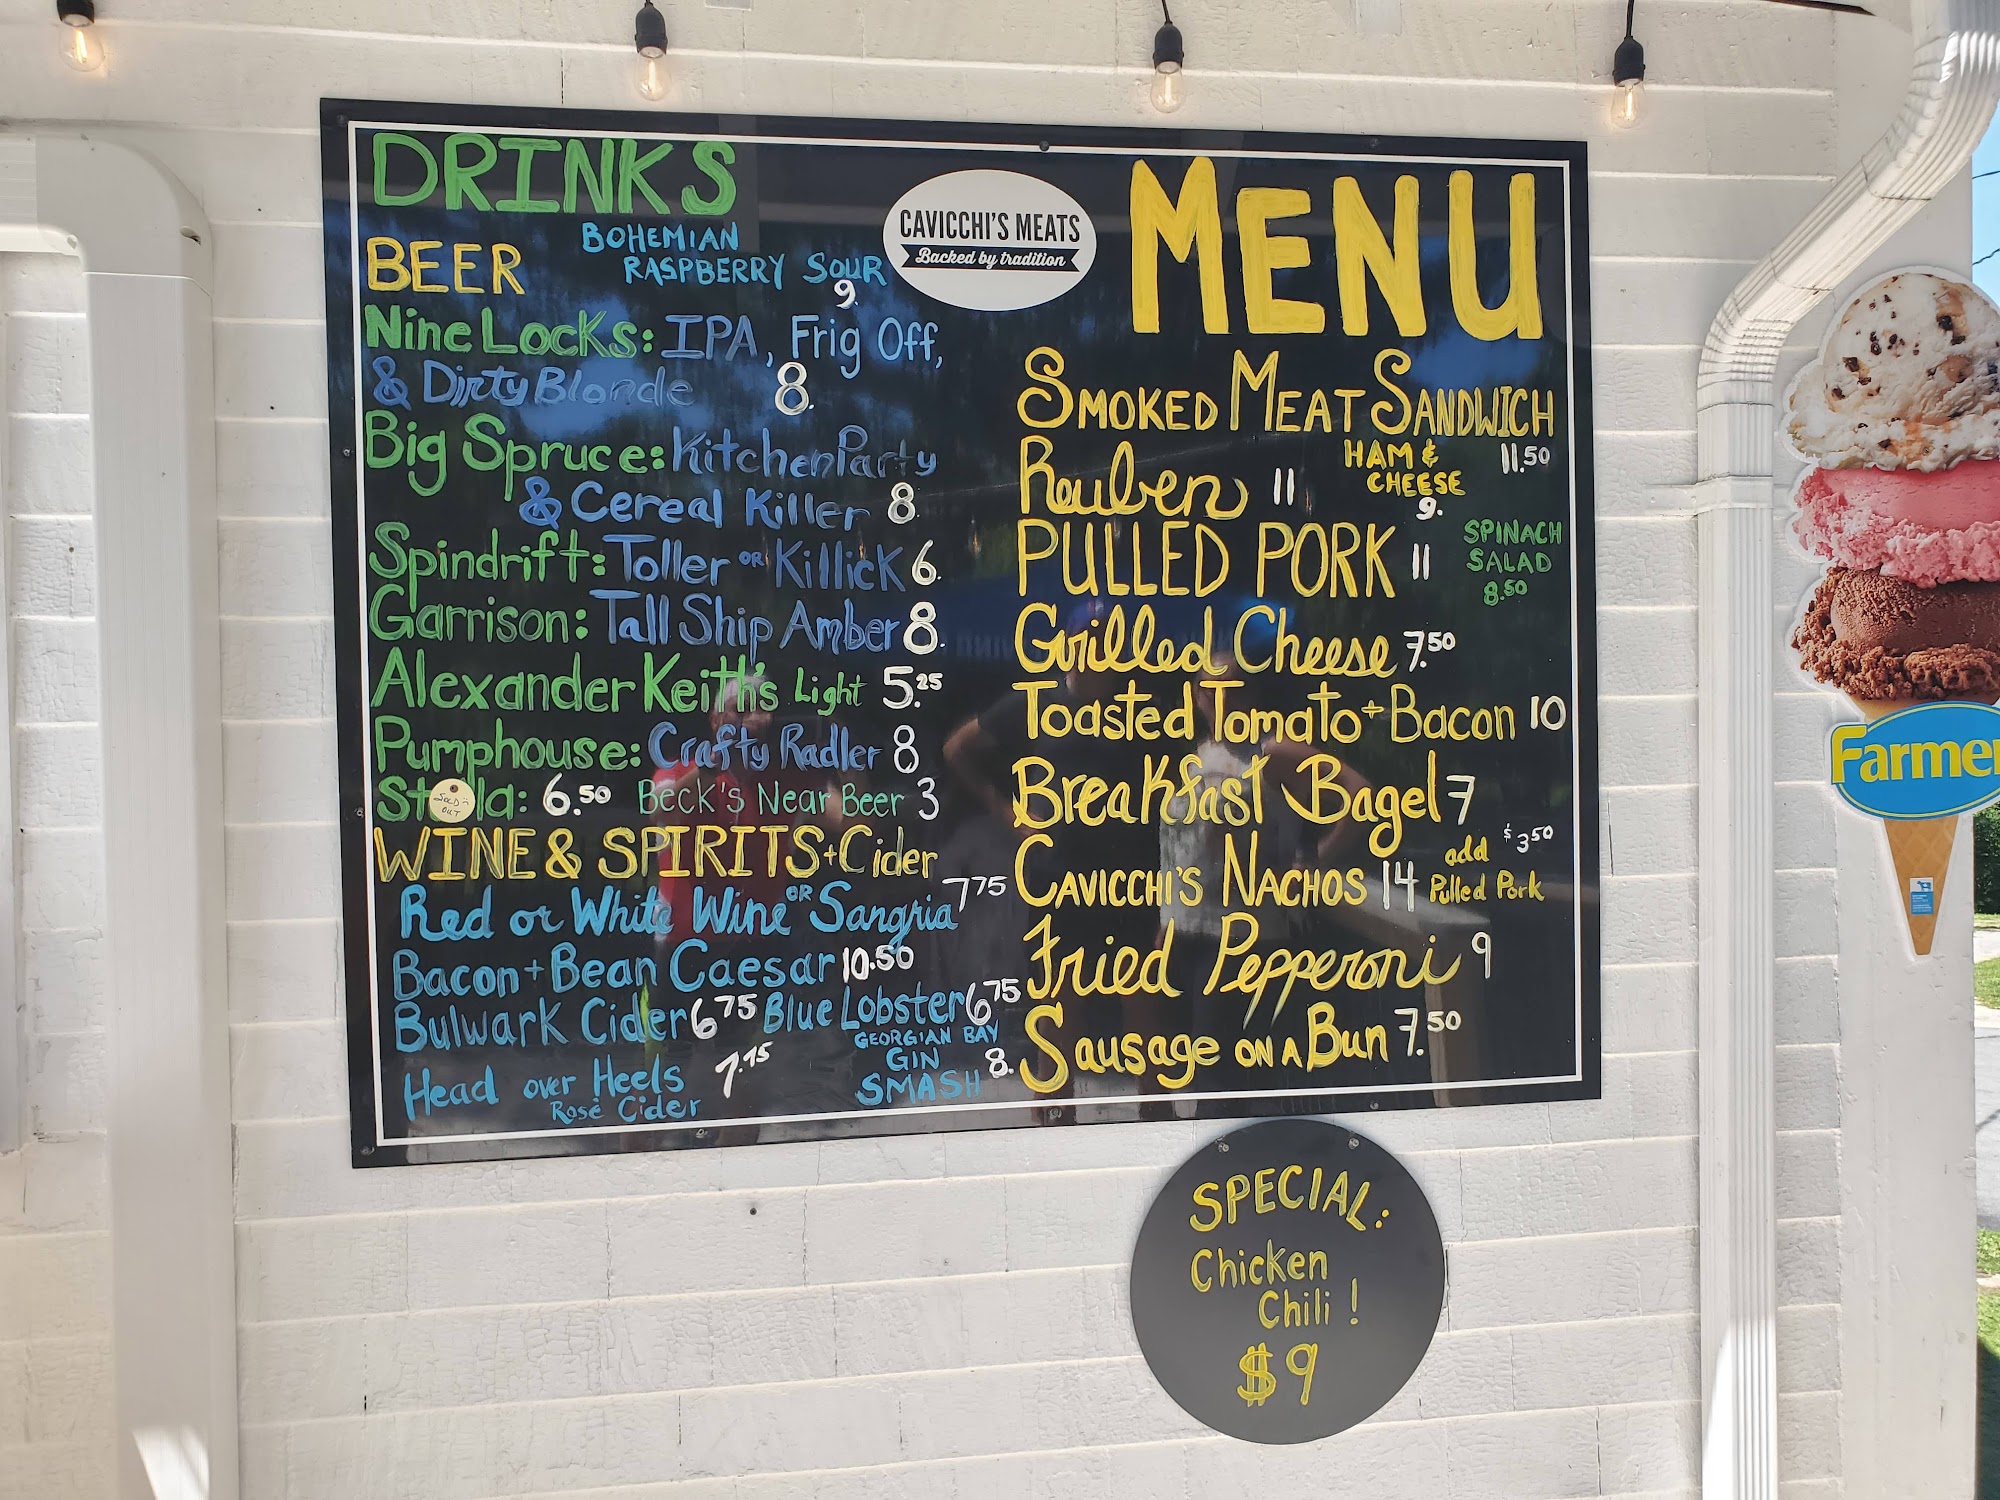 DRINKS
BEER
BOHEMIAN
RASPBERRY SOUR
9.
Nine Locks: IPA, Frig Off,
& Dirty Blonde 8.
Big Spruce: Kitchen Party
& Cereal Killer 8.
Spindrift: Toller OR Killick 6.
Garrison: Tall Ship Amber 8.
Alexander Keith's Light 5.25
Pumphouse: Crafty Radler 8
St la: 6.50 Beck's Near Beer 3
SOLD
OUT
WINE & SPIRITS + Cider
Red or White Wine OR Sangria 7 75
Bacon + Bean Caesar 10.50
Bulwark Cider 6 75 Blue Lobster 6 75
Head over Heels 7.75
Rosé Cider
GEORGIAN BAY
GIN
SMASH 8.
CAVICCHI'S MEATS
Backed by tradition
MENU
SMOKED MEAT SANDWICH
11.50
Reuben 11
HAM &
CHEESE
9.
PULLED PORK 11
SPINACH
SALAD
8.50
Grilled Cheese 7.50
Toasted Tomato + Bacon 10
Breakfast Bagel 7
CAVICCHI'S NACHOS 14
add $3 50
Pulled Pork
Fried Pepperoni 9
Sausage ON A Bun 7.50
SPECIAL:
Chicken
Chili !
$9
Farmer